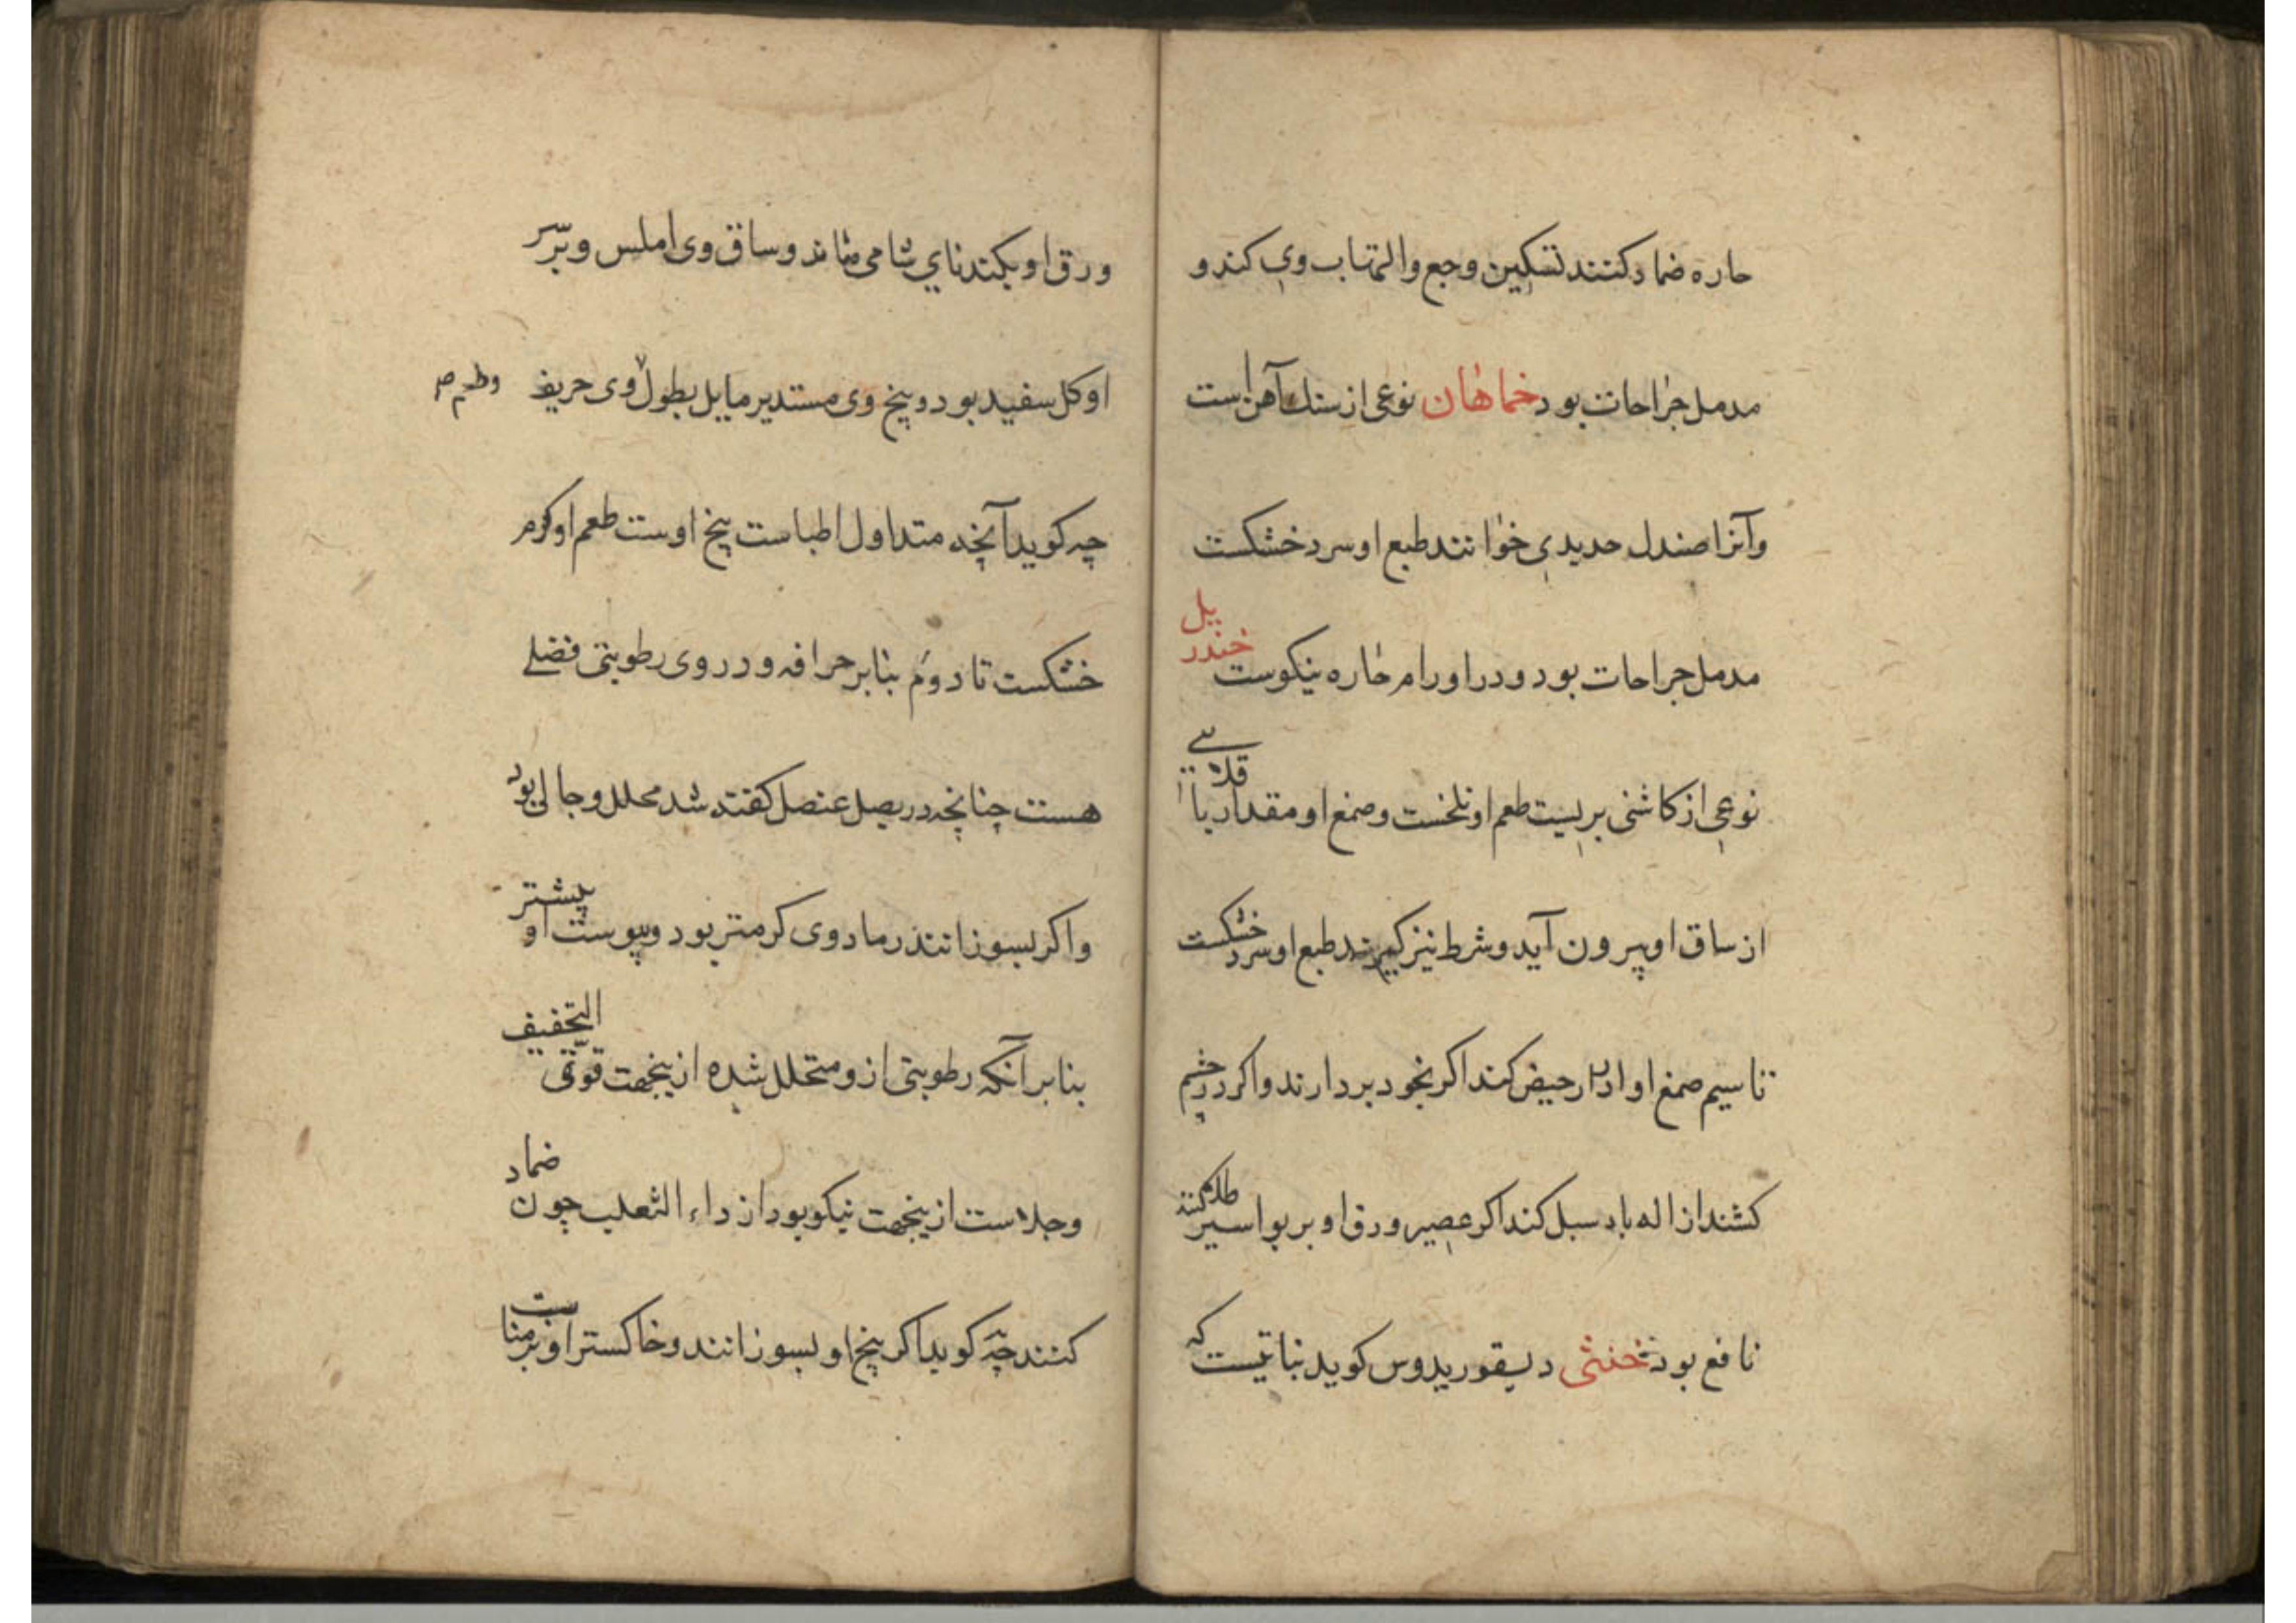 حاره ضماد کنند تسکین وجع والتهاب وی کند و
مدمل جراحات بود خماهان نوعی از سنک آهن است
وآنرا صندل حدیدی خوانند طبع او سرد خشکست
مدمل جراحات بود و در اورام حاره نیکوست خندریل
نوعی از کاشنی بریست طعم او تلخست و صمغ او مقدار باقلایی
از ساق او بیرون آید و شرط نیز کیرند طبع او سرد خشکست
تا سیم صمغ او ادرار حیض کند اکر بخود بردارند واکر در چشم
کشند ازاله باد سبل کند اکر عصیر ورق او بر بواسیر طلا کنند
نافع بود خنثی دیسقوریدوس کوید نباتیست که
ورق او بکندنای شامی ماند و ساق وی املس و بر سر
او کل سفید بود و بیخ وی مستدیر مایل بطول وی حریف
چه کوید آنچه متداول اطباست بیخ اوست طعم او کرم
خشکست تا دوم بنابر حرافه و در وی رطوبتی فضلی
هست چنانچه در بصل عنصل کفته شد محلل و جالی بود
واکر بسوزانند رماد وی کرمتر بود و یبوست او بیشتر
بنابر آنکه رطوبتی ازو متحلل شده ازینجهت قوی التجفیف
وجلاست ازینجهت نیکو بود از داء الثعلب چون ضماد
کنند چه کوید اکر بیخ او بسوزانند و خاکستر او بر